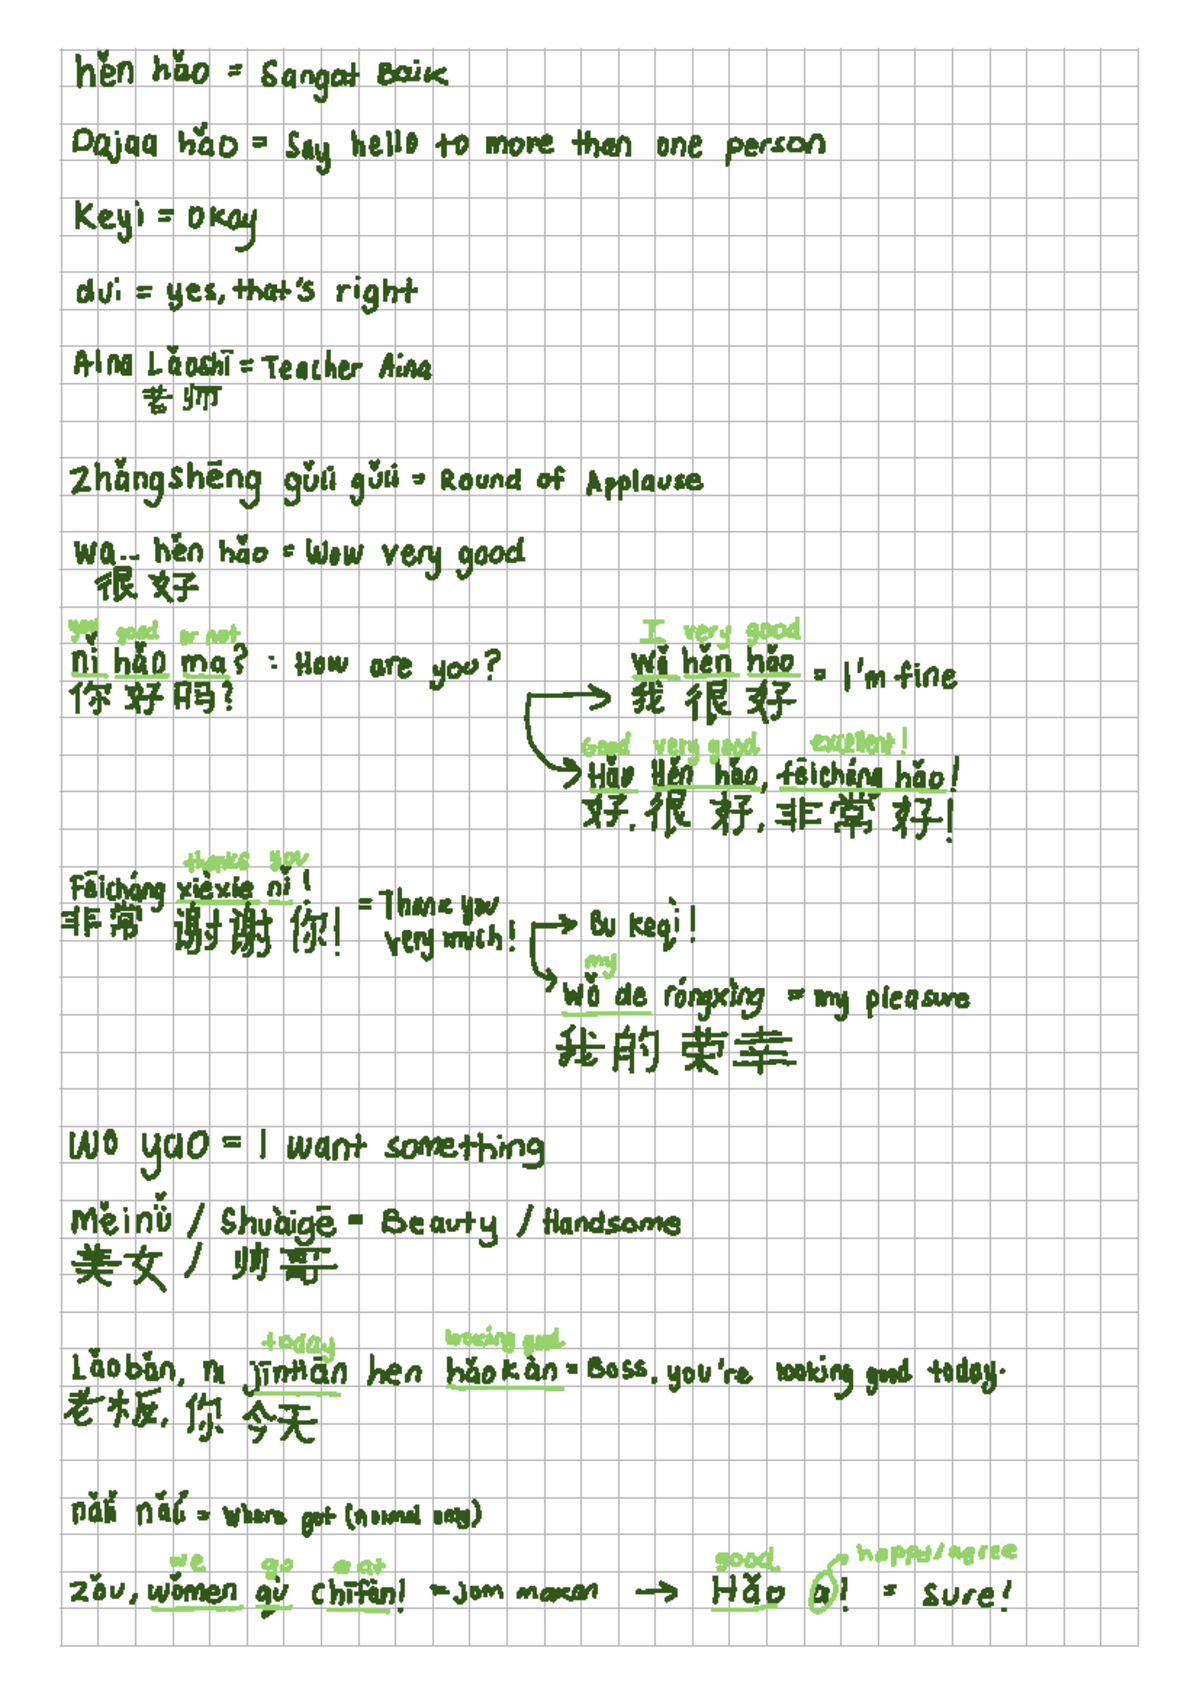 hěn hǎo = Sangat Baik
Dajaa hǎo = Say hello to more than one person
Keyi = okay
dui = yes, that's right
Aina Lǎoshī = Teacher Aina
老师
Zhǎngshēng gǔlì gǔlì = Round of Applause
Wa... hěn hǎo = Wow very good
很好
you good or not
nǐ hǎo ma? : How are you?
你好吗?
I very good
Wǒ hěn hǎo = I'm fine
我很好
Good very good excellent!
Hǎo Hěn hǎo, fēicháng hǎo!
好, 很好, 非常好!
thanks you
Fēicháng xièxie nǐ! = Thank you very much!
非常 谢谢你!
Bu keqì!
my
Wǒ de róngxìng = my pleasure
我的荣幸
Wǒ yao = I want something
Měinǚ / Shuàigē = Beauty / Handsome
美女 / 帅哥
today looking good
Lǎobǎn, ni jīntiān hen hǎokàn = Boss, you're looking good today.
老板, 你今天
nǎlǐ nǎlǐ = where got (normal only)
we go eat
Zǒu, wǒmen qù chīfàn! = jom makan → Hǎo a! = Sure!
good happy/agree